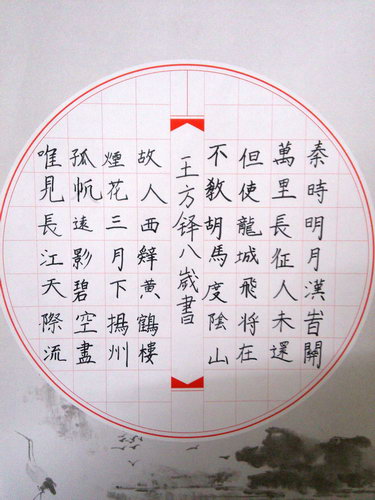 秦時明月漢旹關
萬里長征人未還
但使龍城飛將在
不教胡馬度陰山
王方铎八歲書
故人西辤黄鶴樓
煙花三月下揚州
孤帆遠影碧空盡
唯見長江天際流